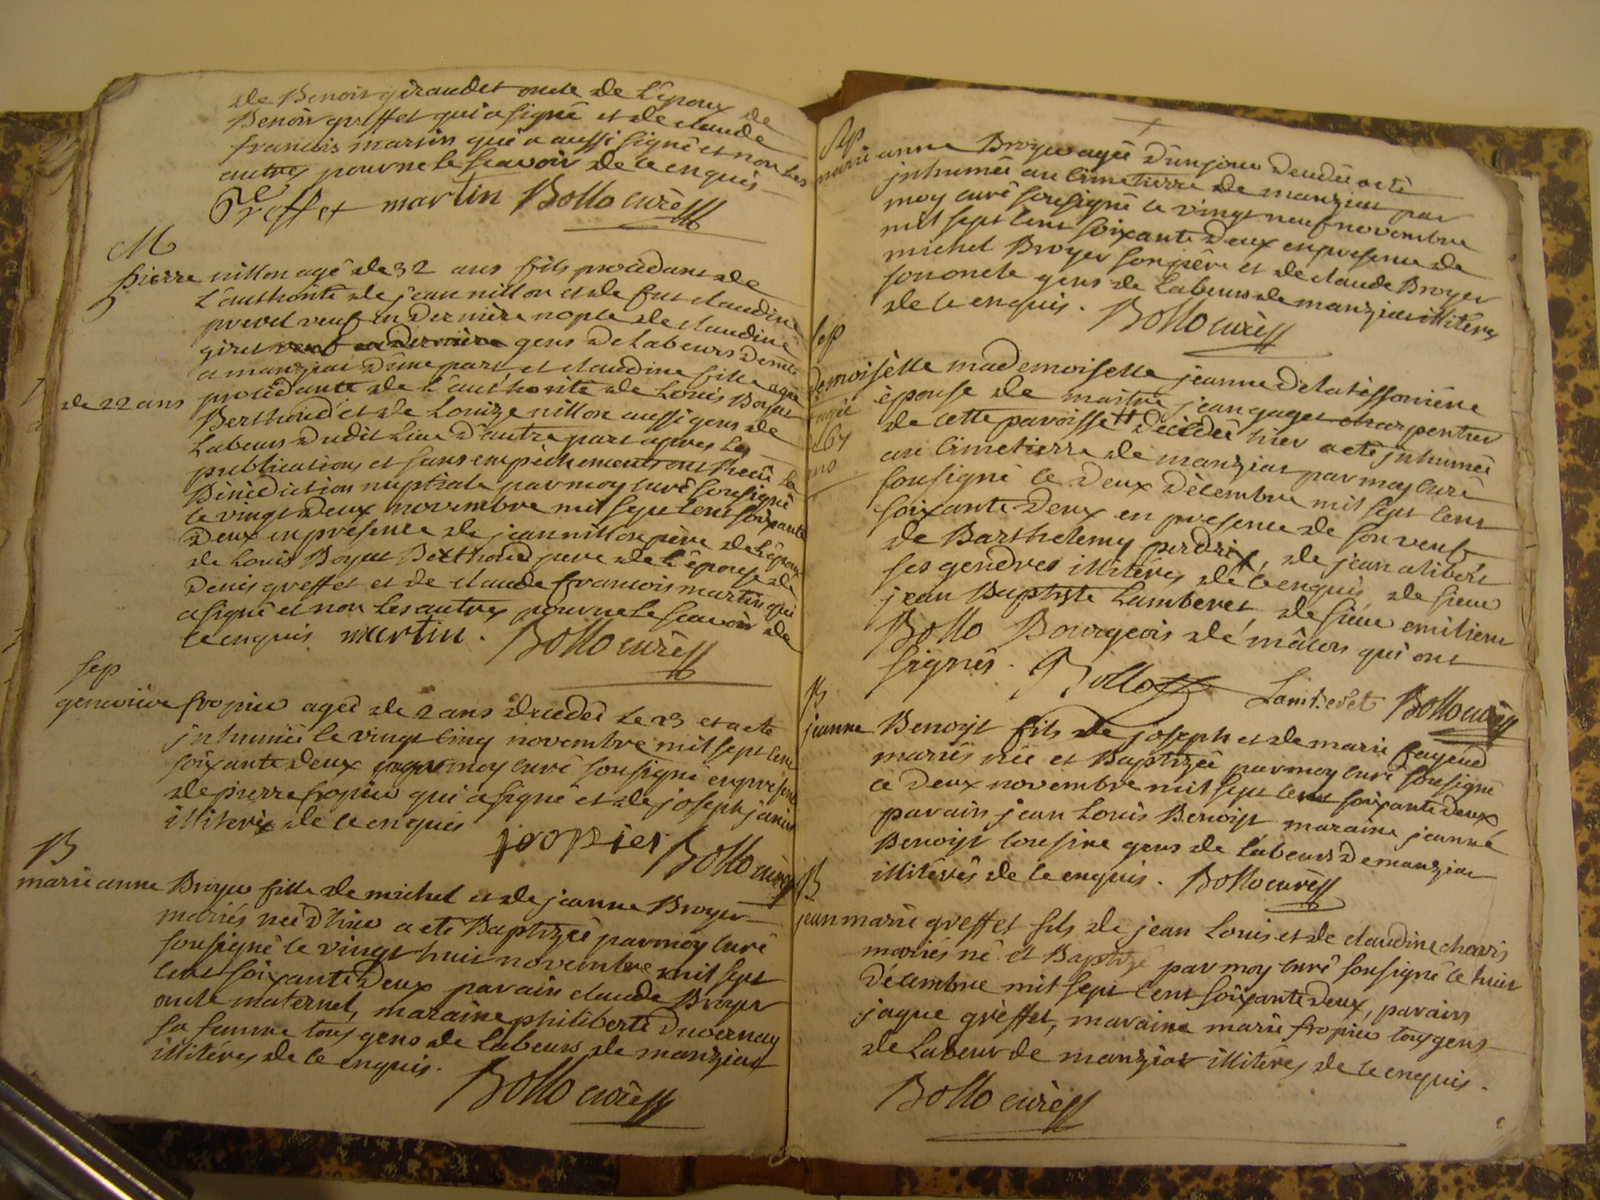 de Benoit giraudet oncle de L'époux de
Benoit greffet qui a signé et de claude
francois martin qui a aussi signé et non Les
autres pour ne le scavoir de ce enquis
Greffet martin Bollo curé
M
pierre nillon agé de 32 ans fils procedant de
L'authorité de jean nillon et de fut claudine
prevel veuf en derniere nopce de claudine
giret gens de Labeurs demts
a manziat d'une part et claudine fille agée
de 22 ans procedante de L'authorité de Louis Boyat
Berthoud et de Louize nillon aussi gens de
Labeurs dudit Lieu d'autre part apres Les
publications et sans empêchements ont Recû La
Bénédiction nuptiale par moy curé sousigné
le vingt deux novembre mil sept cent soixante
deux en présence de jean nillon père de L'époux
de Louis Boyat Berthoud pere de L'épouse de
denis greffet et de claude francois martin qui
a signé et non Les autres pour ne Le scavoir de
ce enquis martin . Bollo curé
sep
geneviève fropier agée de 2 ans décédée Le 23 et a eté
jnhumée le vingt cinq novembre mil sept cent
soixante deux par moy curé sousigné en présence
de pierre fropier qui a signé et de joseph janin
illiteré de ce enquis
fropier Bollo curé
B
marie anne Broyer fille de michel et de jeanne Broyer
mariés née d'hier a eté Baptizée par moy curé
sousigné le vingt huit novembre mil sept
cent soixante deux parain claude Broyer
oncle maternel, maraine philiberte duvernay
sa femme tous gens de Labeurs de manziat
illitérés de ce enquis.
Bollo curé
sep
marie anne Broyer agée d'un jour decedée a eté
jnhumée au cimetierre de manziat par
moy curé sousigné le vingt neuf novembre
mil sept cent soixante deux en presence de
michel Broyer son père et de claude Broyer
son oncle gens de Labeurs de manziat illitérés
de ce enquis . Bollo curé
sep
demoisèlle mademoiselle jeanne delatessonière
épouse de maitre jean gaget charpentier
de cette paroisse # décédée hier a eté jnhumée
au cimetierre de manziat par moy curé
sousigné le deux décembre mil sept cent
soixante deux en presence de son veuf
de Barthelemy perdrix, de jean alibert
ses gendres illitérés de ce enquis de sieur
jean Baptiste Lamberet, de sieur emiliene
Bollo Bourgeois de mâcon qui ont
signés . Bollo Lamberet Bollo curé
B
jeanne Benoist fils de joseph et de marie fayend
mariés née et Baptizée par moy curé sousigné
ce deux novembre mil sept cent soixante deux,
parain jean Louis Benoist maraine jeanne
Benoist cousine gens de Labeurs de manziat
illitérés de ce enquis . Bollo curé
B
jean marie greffet fils de jean Louis et de claudine chavis
mariés né et Baptizé par moy curé sousigné le huit
décembre mil sept cent soixante deux, parain
jaque grèffet, maraine marie fropier tous gens
de Labeur de manziat illitérés de ce enquis .
Bollo curé